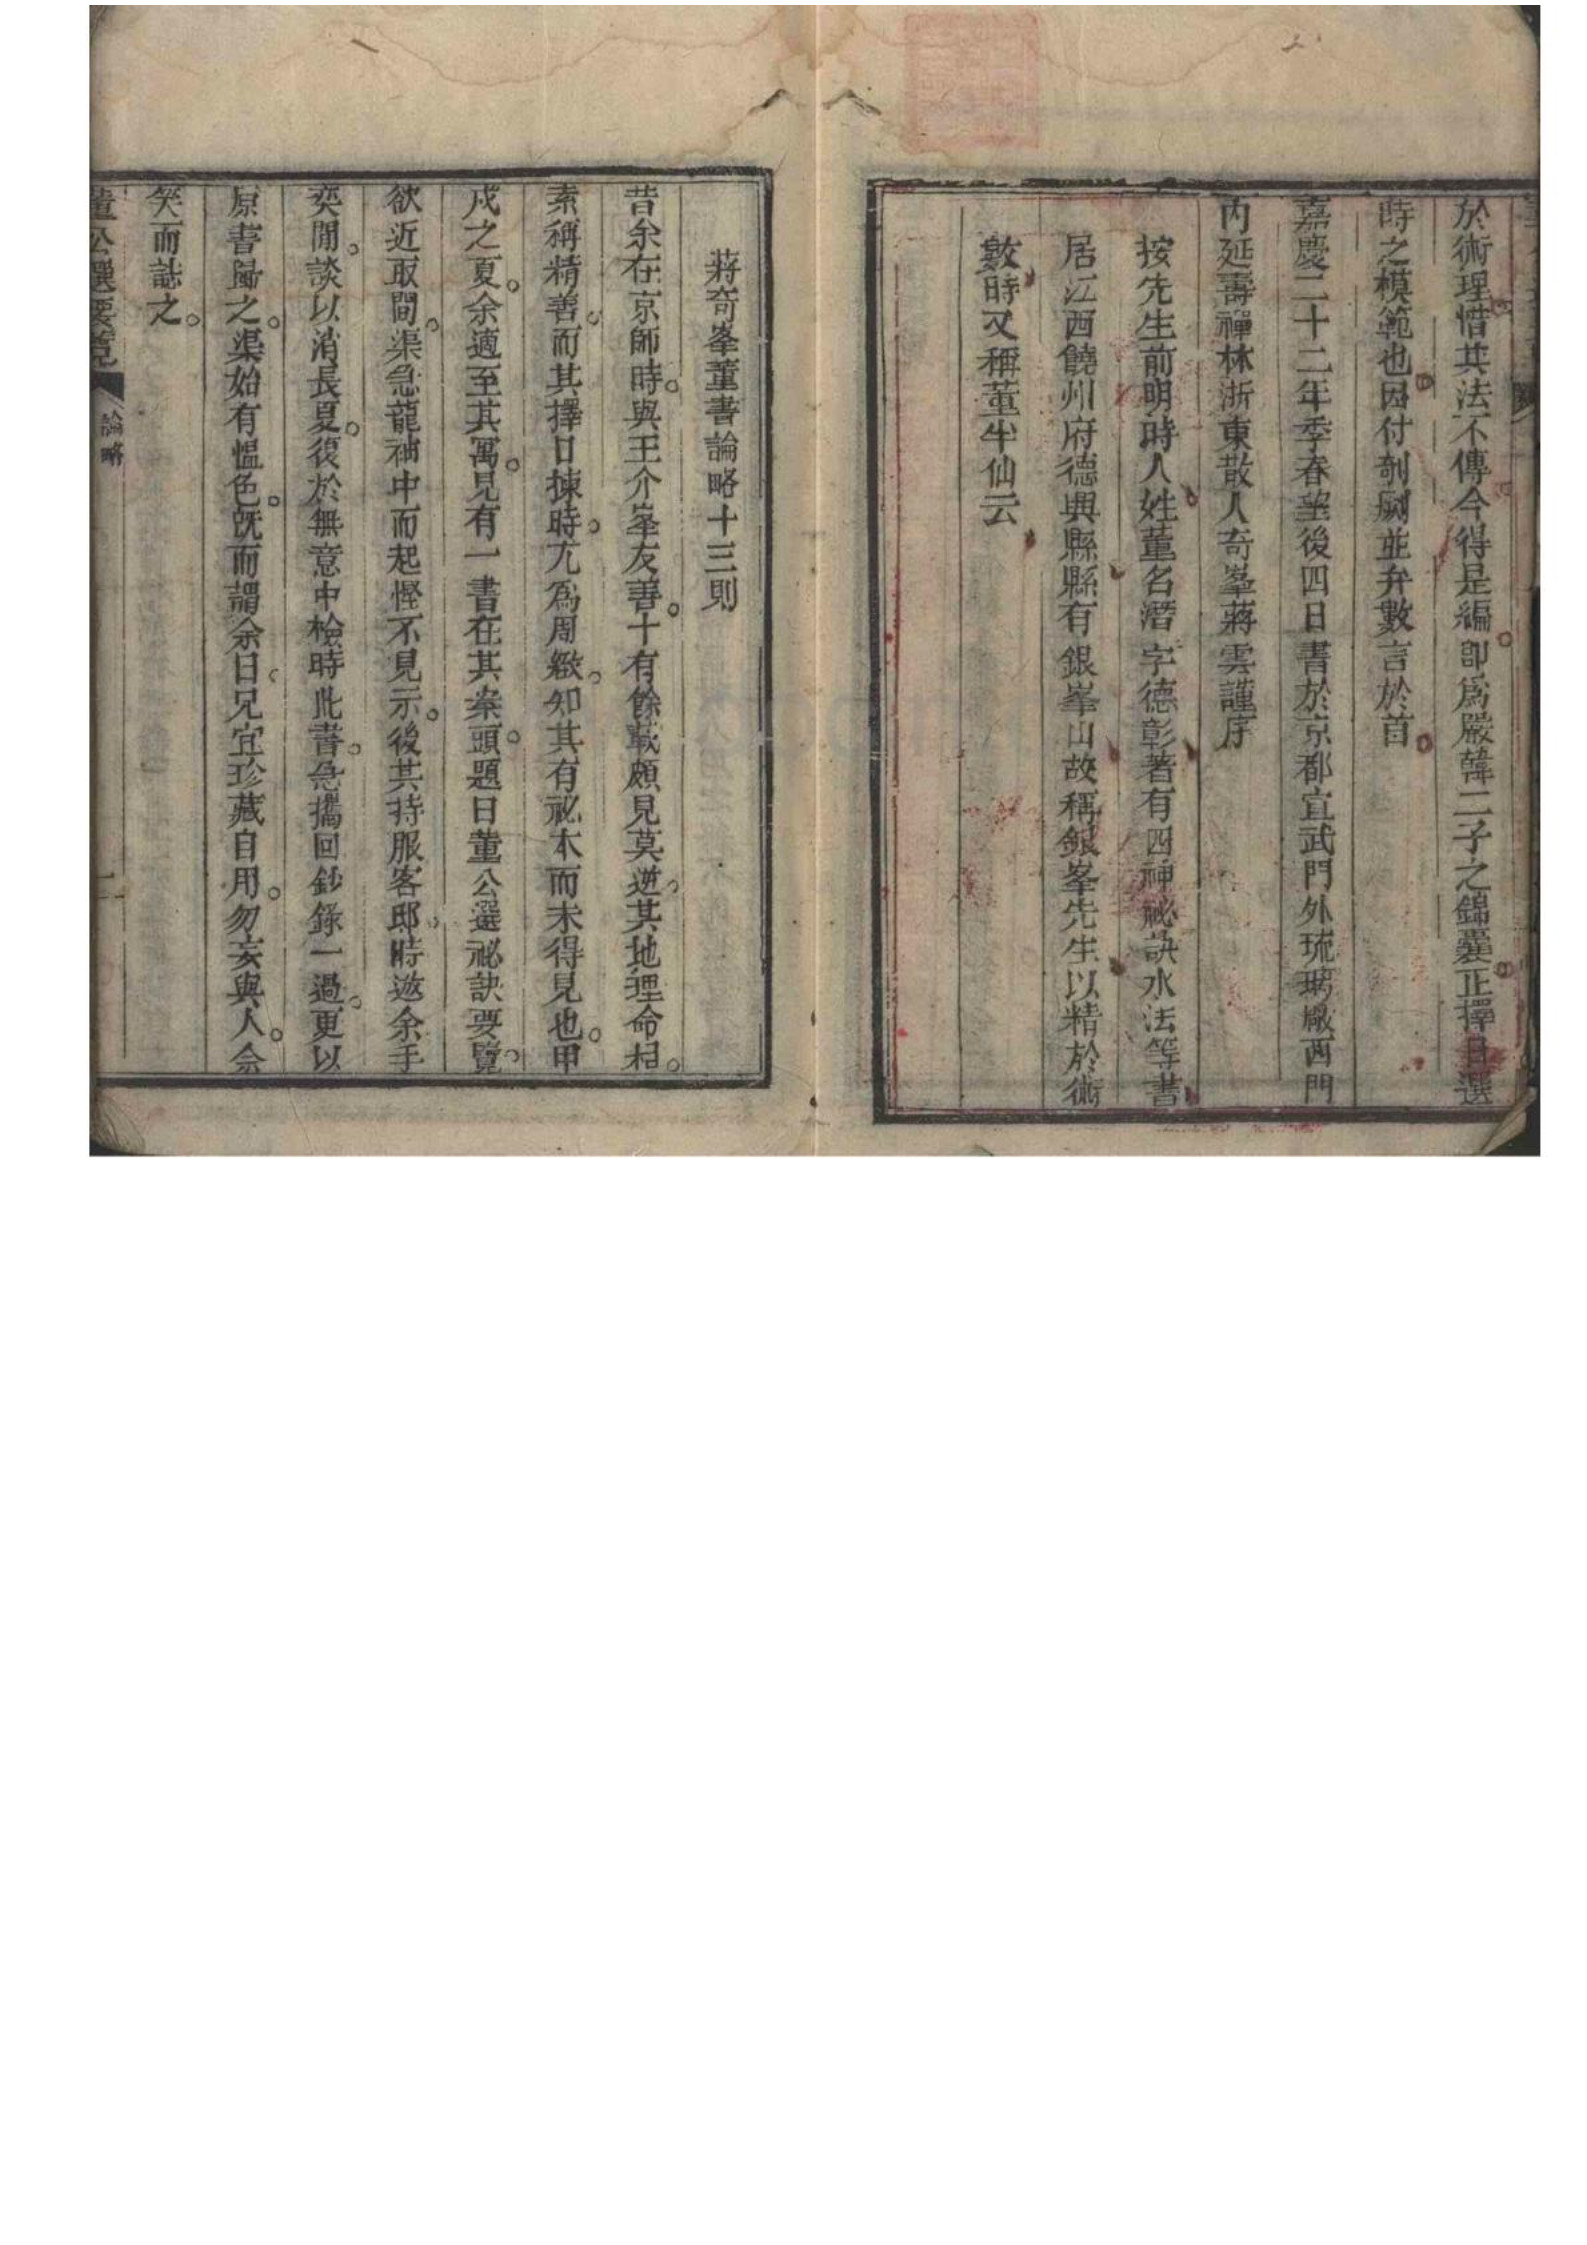 於術理惜其法不傳今得是編卽爲嚴韓二子之錦囊正擇日選
時之模範也因付剞劂並弁數言於首
嘉慶二十二年季春望後四日書於京都宣武門外琉璃厰西門
內延壽禪林浙東散人奇峯蔣雲謹序
按先生前明時人姓董名潛字德彰著有四神祕訣水法等書
居江西饒州府德興縣縣有銀峯山故稱銀峯先生以精於術
數時又稱董半仙云
蔣奇峯董書論略十三則
昔余在京師時。與王介峯友善。十有餘載頗見莫逆。其地理命相。
素稱精善。而其擇日揀時。尤爲周緻。知其有祕本而未得見也。甲
戌之夏。余適至其寓。見有一書在其案頭。題曰董公選祕訣要覽。
欲近取閱。渠急籠袖中而起慳不見示。後其持服客邸。時遊余手
奕閒。談以消長夏。復於無意中檢時此書。急攜回鈔錄一過。更以
原書歸之。渠始有慍色。旣而謂余曰。兄宜珍藏自用。勿妄與人。余
笑而誌之。
董公選要覽
論略
一